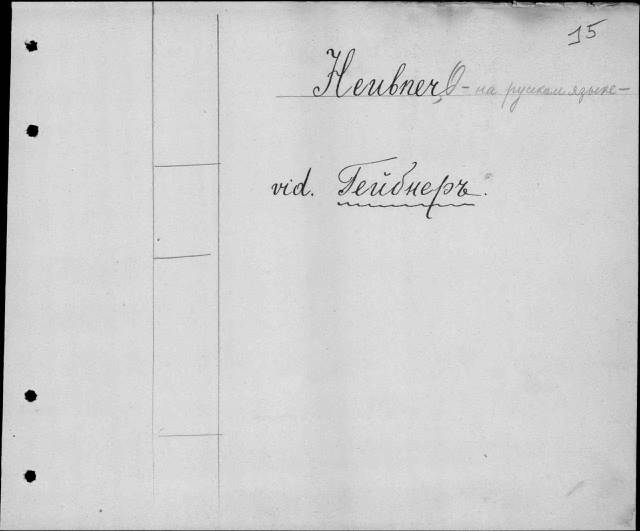 15
Heubner, O - на руском языке -
vid. Гейбнеръ.